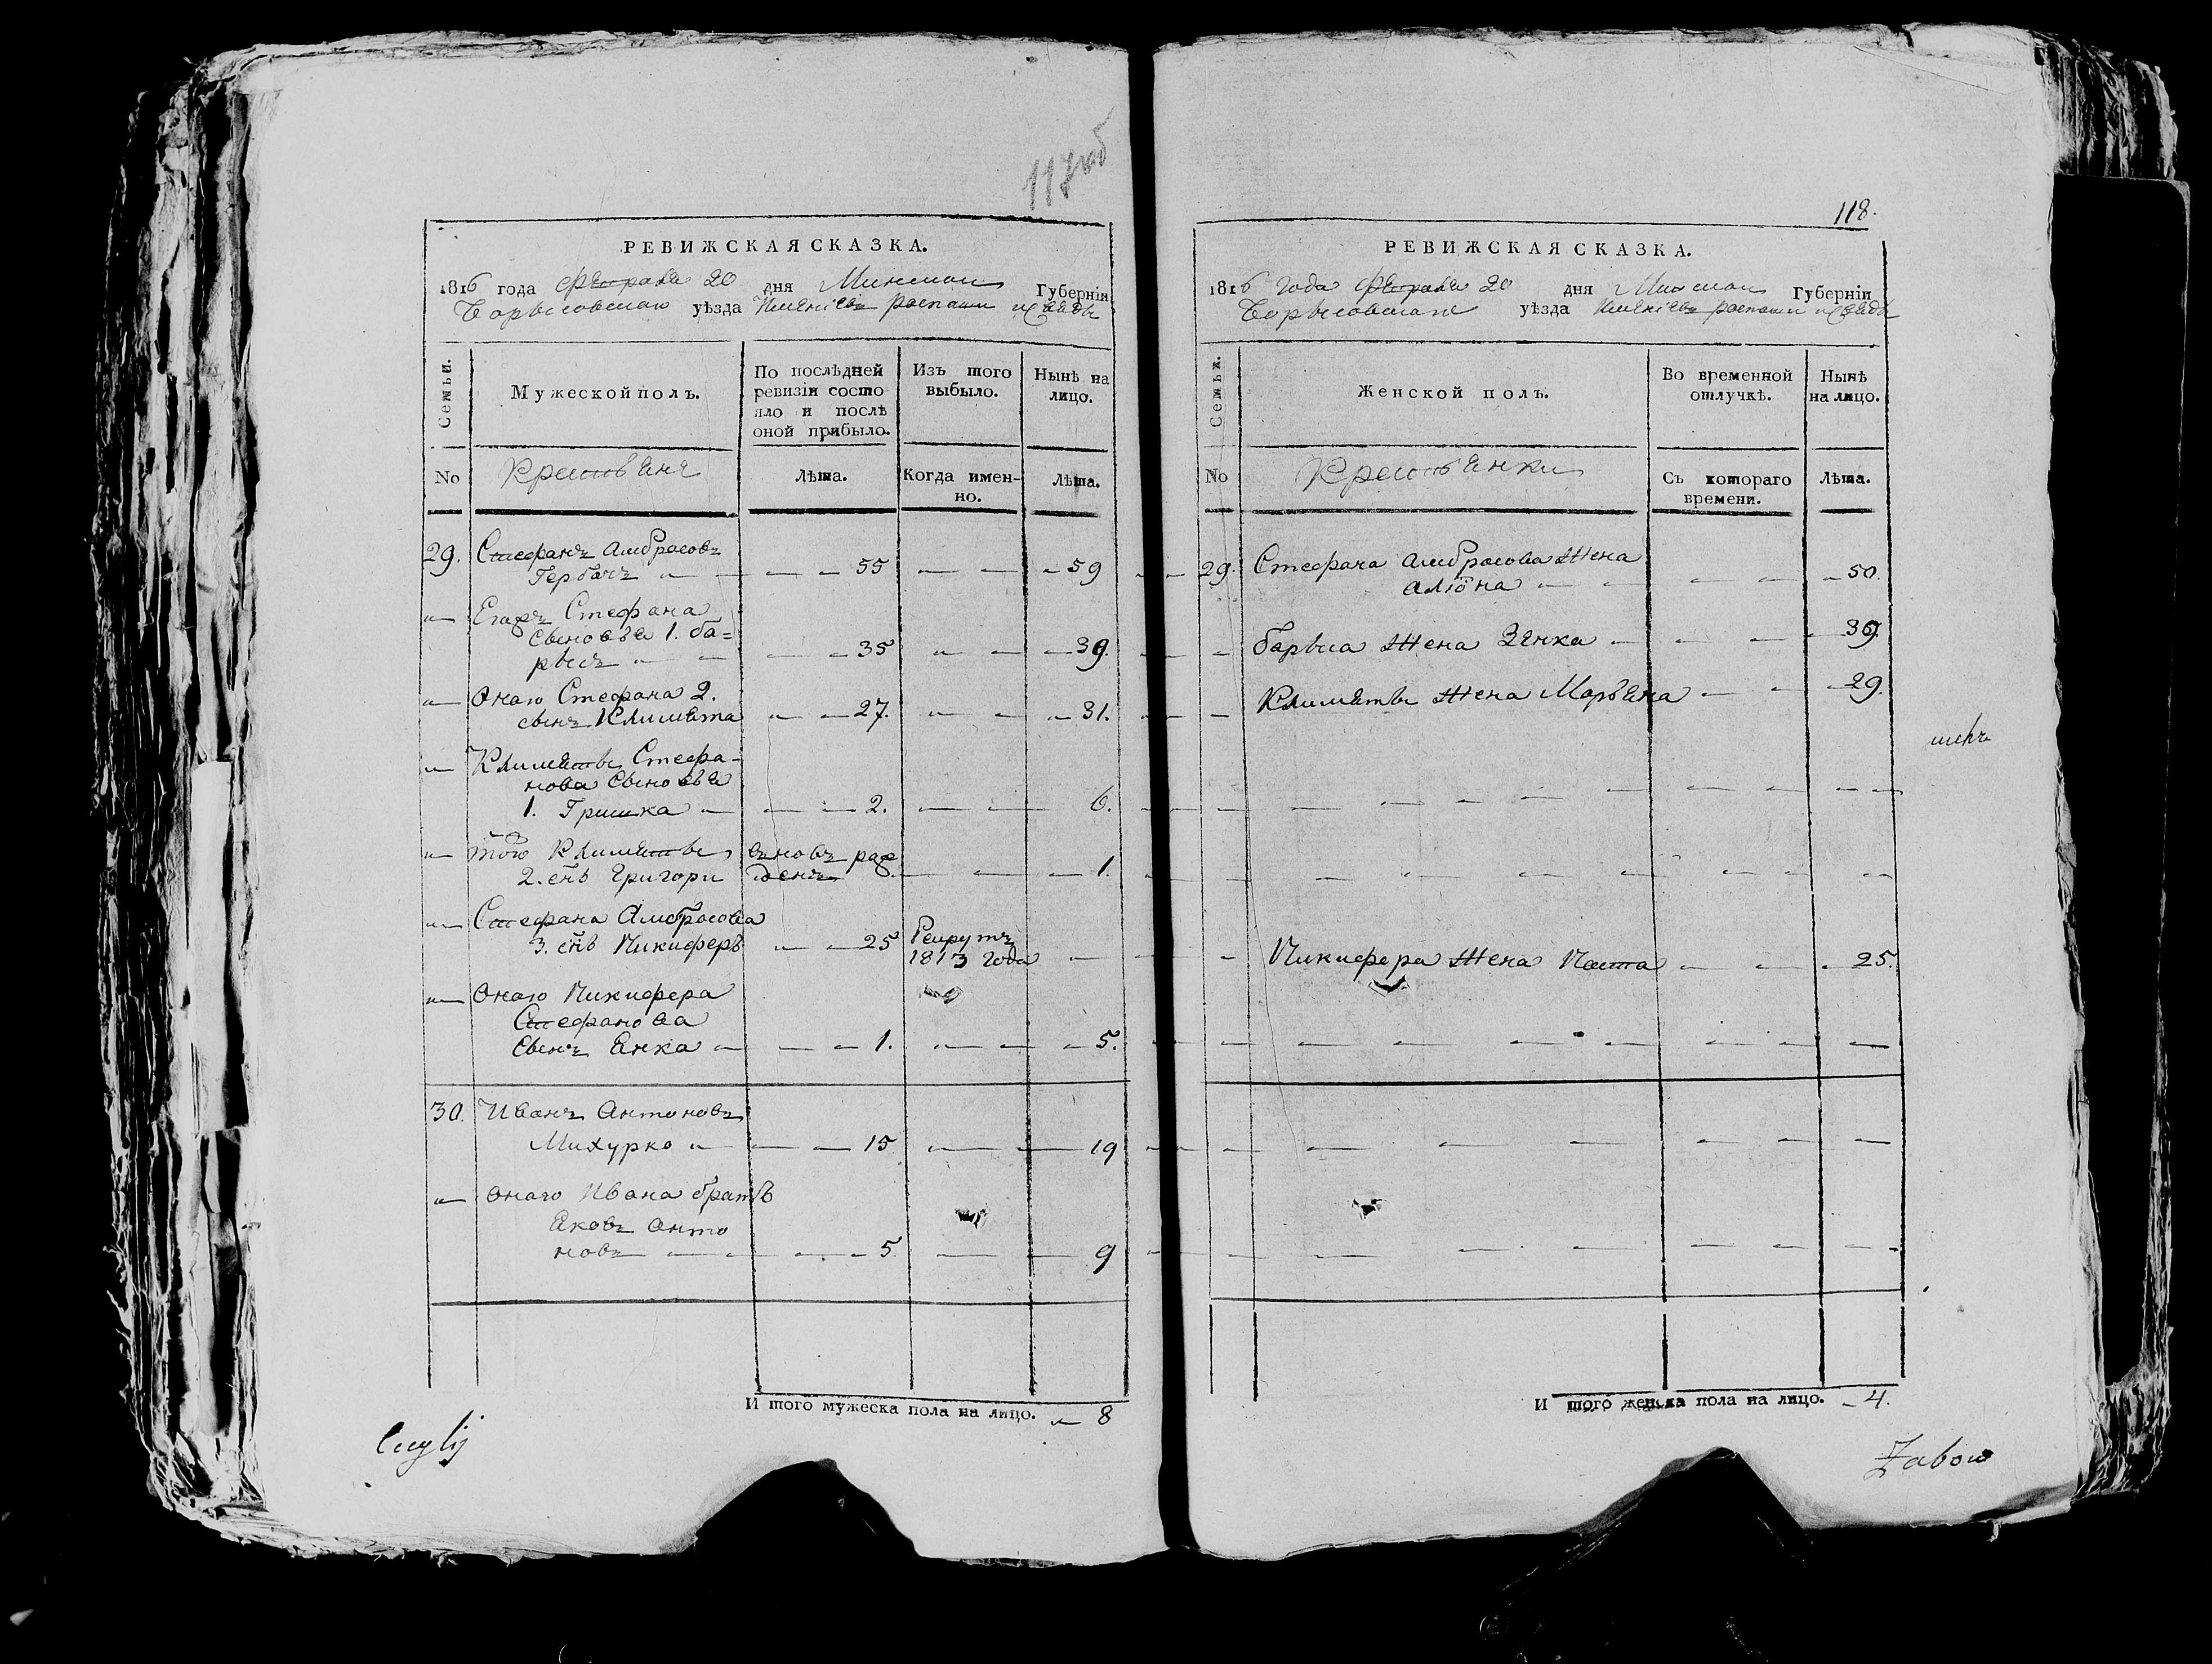 117 об
РЕВИЖСКАЯ СКАЗКА.
1816 года февраля 20 дня Минской Губерніи
Борысовскаго уѣзда
Семьи.
Мужеской полъ.
По послѣдней ревизіи состо
яло и послѣ оной прибыло.
Изъ того выбыло.
Нынѣ на лицо.
No
Лѣта.
Когда имен-
но.
Лѣта.
29. Стефанъ Амбросовъ
Гербачъ 55 59
Стефана
сыновья 1. ба=
рысъ 35 39.
Оного Стефана 2.
сынъ Климята 27. 31.
Климяты Стефа-
нова сыновья
1. Гришка 2. 6.
того Климяты вновь рож
2. снъ Григори денъ 1.
Стефана Амбросова
3. снъ Никиферъ 25 Рекрутъ
1813 года
Оного Никифера
Стефанова
сынъ Янка 1. 5.
30. Иванъ Антоновъ
Михурко 15 19
Оного Ивана братъ
Яковъ Анто
новъ 5 9
И того мужеска пола на лицо. 8
118.
РЕВИЖСКАЯ СКАЗКА.
1816 года февраля 20 дня Минской Губерніи
уѣзда
Семьи.
Женской полъ.
Во временной
отлучкѣ.
Нынѣ
на лицо.
No
Крестьянки
Съ котораго
времени.
Лѣта.
29. Стефана Амбросова жена
алюна 50.
барыса жена Зенка 39.
Климяты жена Марьяна 29.
Никифера жена Наста 25.
И того женска пола на лицо. 4.
Żabow